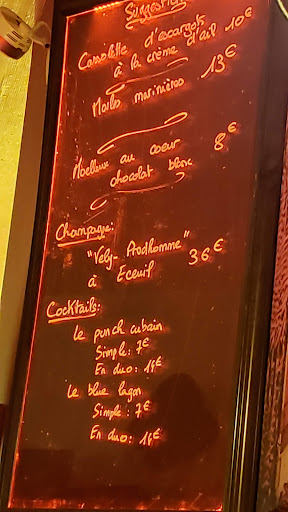 Suggestion
Cassolette d'escargots
à la crème d'ail 10€
Moules marinières 13€
Moelleux au coeur
chocolat blanc 8€
Champagne:
"Vély-Prodhomme" 36€
à Ecueil
Cocktails:
Le punch cubain
Simple: 7€
En duo: 14€
Le blue lagon
Simple: 7€
En duo: 14€